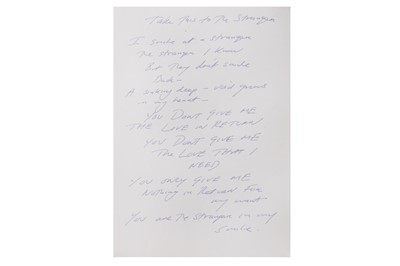 Take this to the Stranger
I smile at a Stranger
The stranger I know
But they don't smile
Back -
A sinking deep - void grows
in my heart -
YOU DON'T GIVE ME
THE LOVE IN RETURN
YOU DON'T GIVE ME
The LOVE THAT I
NEED
YOU ONLY GIVE ME
Nothing in Return for
my want
You are the Stranger in my
Smile.